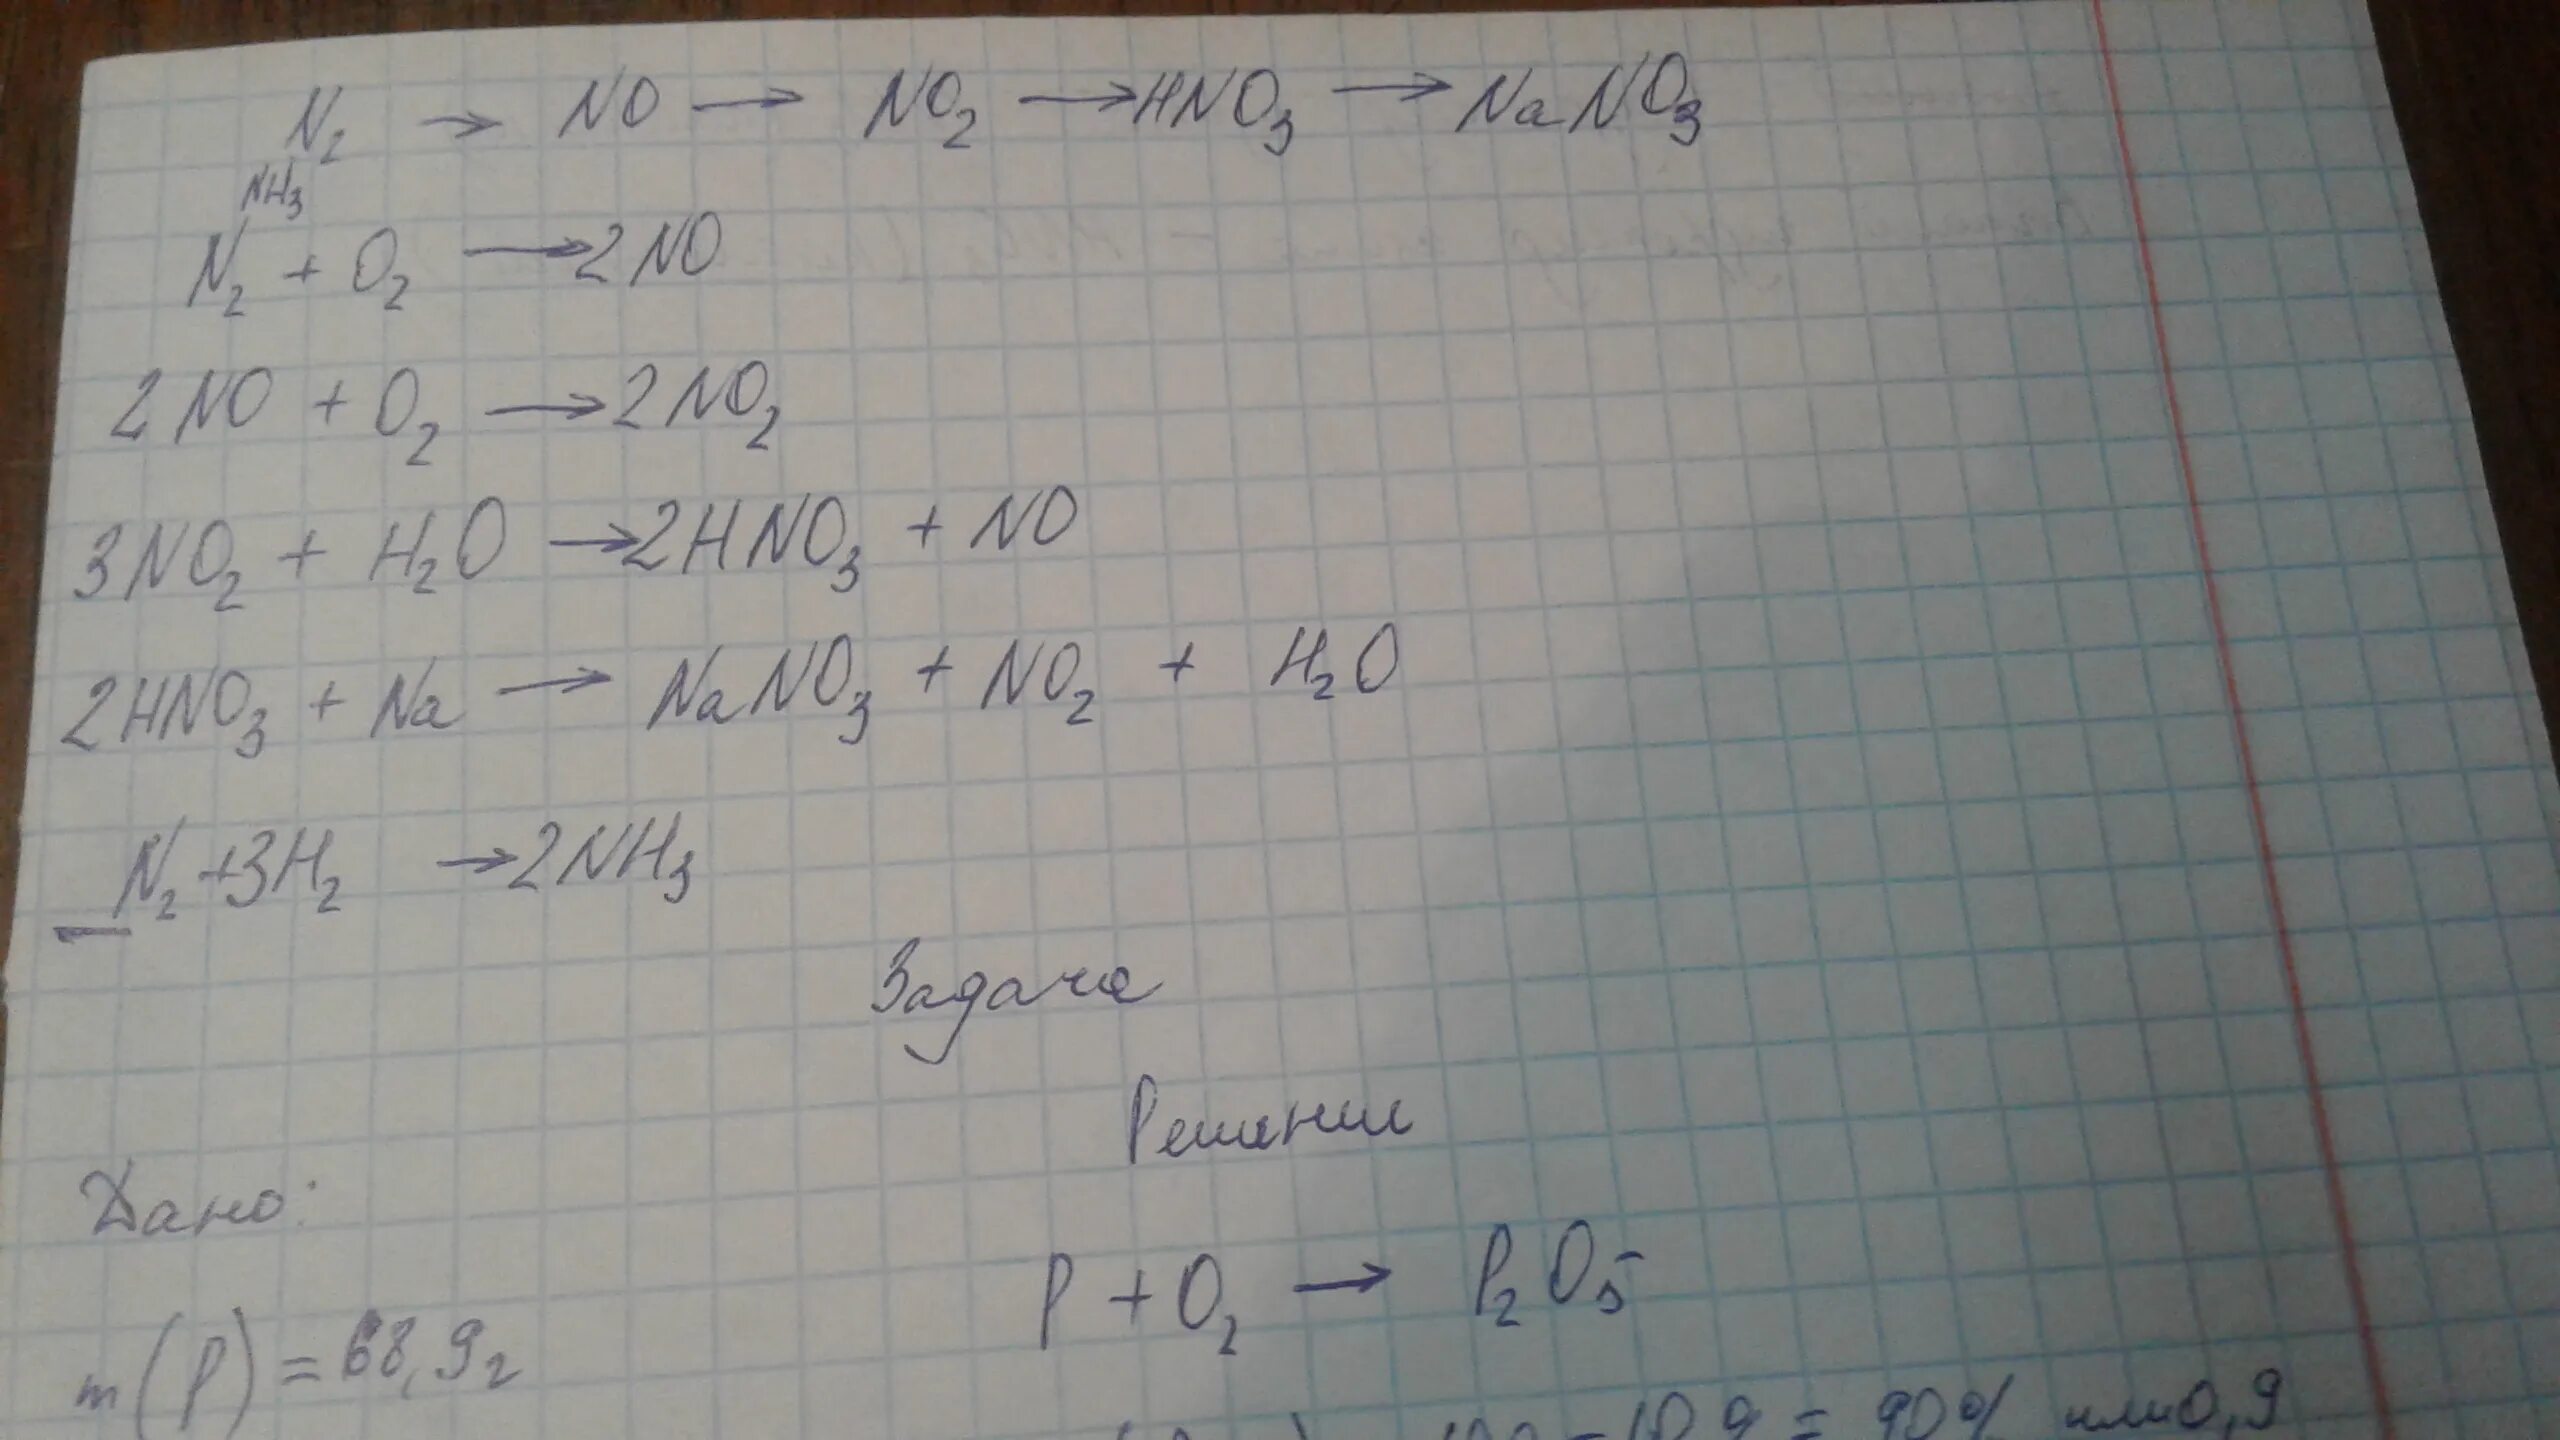 N₂ → NO → NO₂ → HNO₃ → NaNO₃
NH₃
N₂ + O₂ → 2NO
2NO + O₂ → 2NO₂
3NO₂ + H₂O → 2HNO₃ + NO
2HNO₃ + Na → NaNO₃ + NO₂ + H₂O
N₂ + 3H₂ → 2NH₃
Задача
Решении
Дано:
P + O₂ → P₂O₅
m(P) = 68,9г
= 90% или 0,9